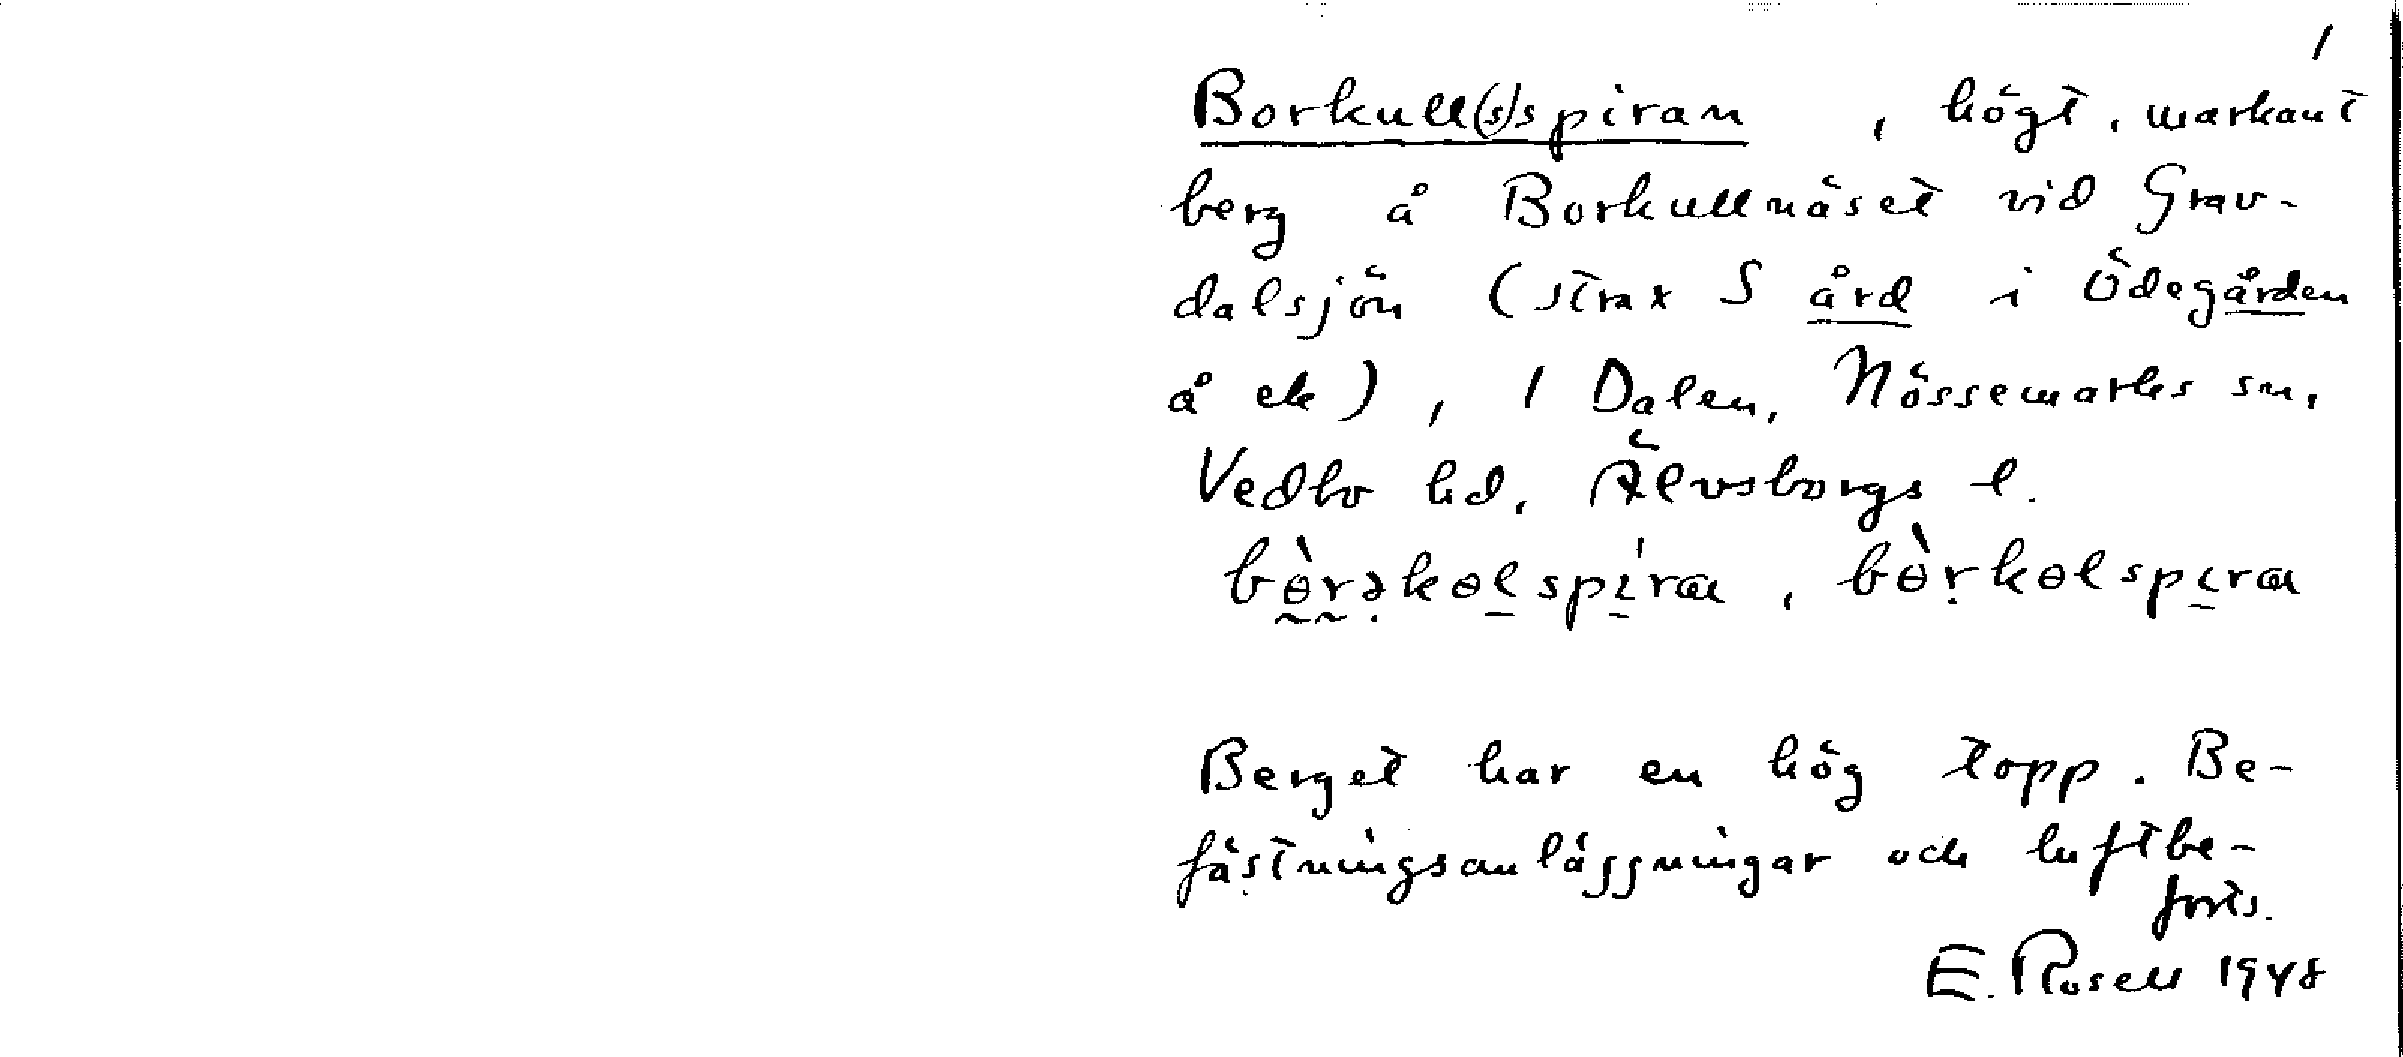 1
Borkull(s)spiran , högt, markant
berg å Borkullnäset vid Grav-
dalsjön (strax S ård i Ödegården
å ek) , 1 Dalen, Nössemarks sn,
Vedbo hd, Älvsborgs l.
bèrəkɵlspi'ra , bɵ̀rkɵlspira
Berget har en hög topp. Be-
fästningsanläggningar och luftbe-
forts.
E. Rosell 1948